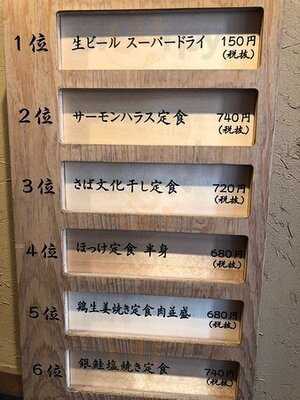 1位 生ビール スーパードライ 150円
(税抜)
2位 サーモンハラス定食 740円
(税抜)
3位 さば文化干し定食 720円
(税抜)
4位 ほっけ定食 半身 680円
(税抜)
5位 鶏生姜焼き定食肉並盛 680円
(税抜)
6位 銀鮭塩焼き定食 740円
(税抜)